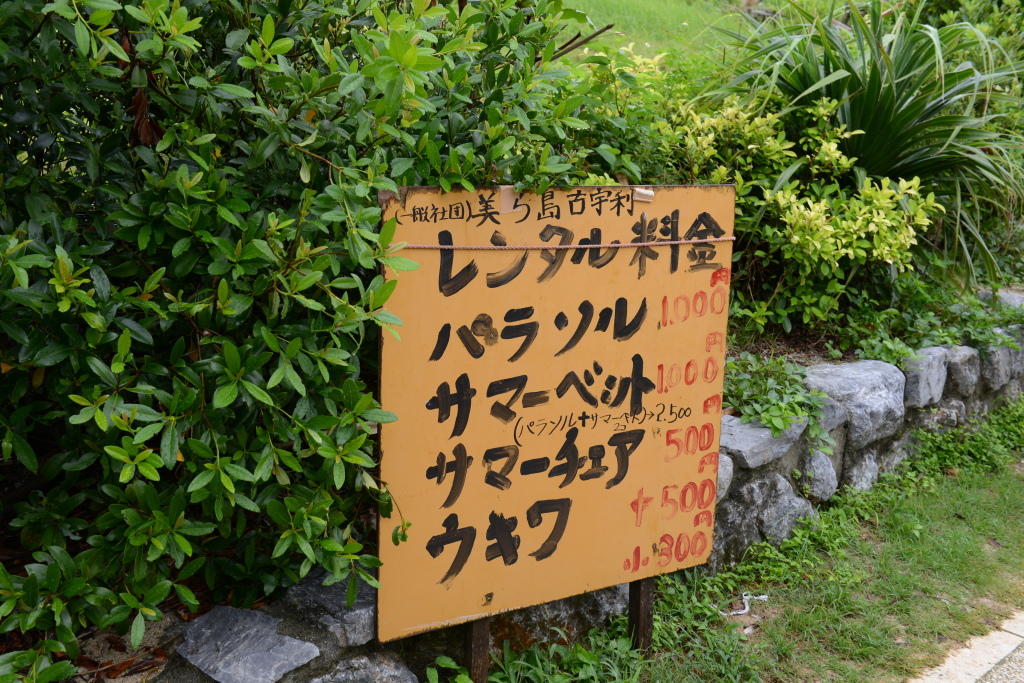 (一般社団)美ら島古宇利
レンタル料金
パラソル 1,000円
サマーベット 1,000円
(パラソル+サマーベット2コ)→2,500
サマーチェア 500円
ウキワ 大500円
小300円